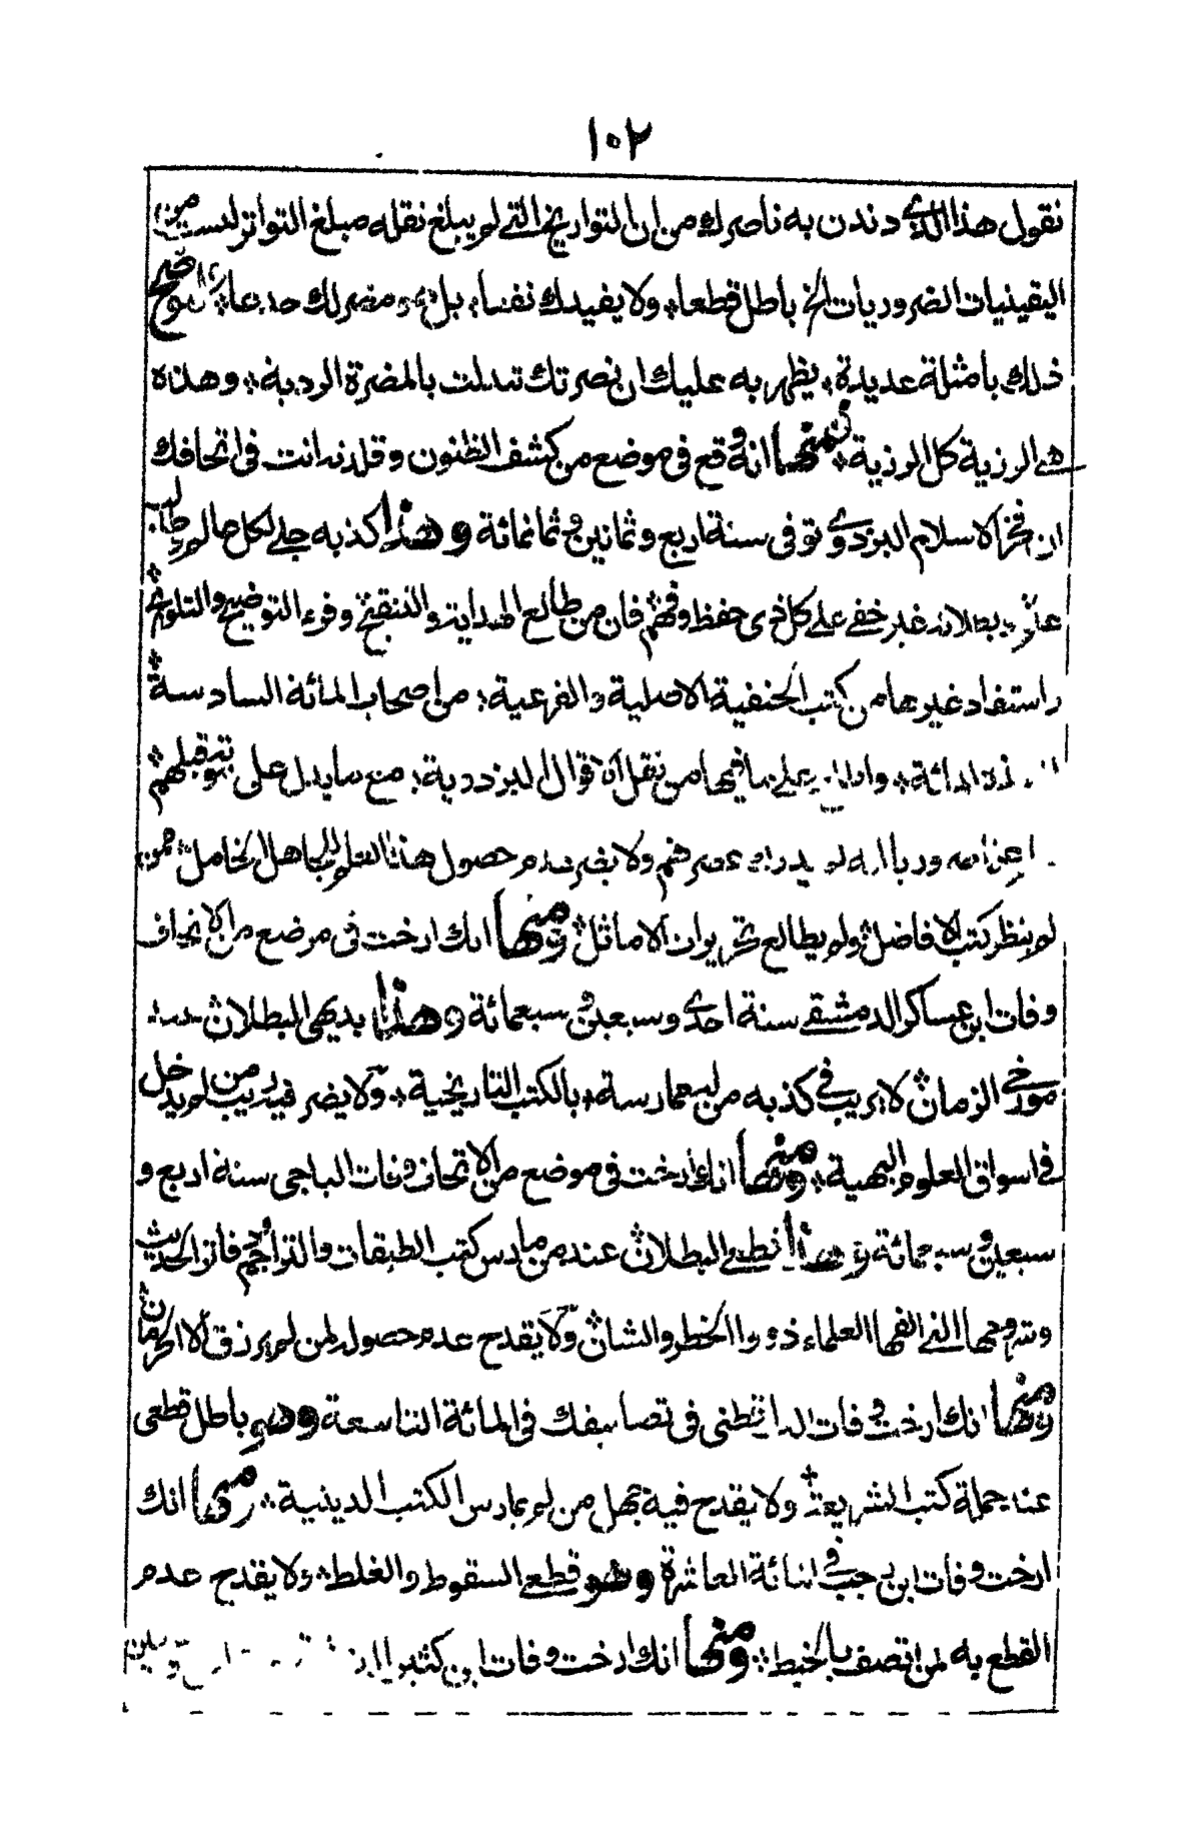 ١٠٢
نقول هذا الذي دندن به ناصرك من ان التواريخ التي لم يبلغ نقله مبلغ التواتر ليست من
اليقينيات الضروريات الخ باطل قطعا ولا يفيدك نفسا بل مضر لك
ذلك بامثلة عديدة يظهر به عليك ان نصرتك تبدلت بالمضرة الردية وهذه
هي الرزية كل الرزية فمنها انه وقع في موضع من كشف الظنون وقلدته انت في اتحافك
ان فخر الاسلام البزدوي توفى سنة اربع وثمانين وثمانمائة وهذا كذبه جلي لكل عالم وطالب
بطلانه غير خفي على كل ذى حفظ وفهم فان من طالع الهداية والتنقيح وقرء التوضيح والتلويح
واستفاد غيرها من كتب الحنفية الاصلية والفرعية من اصحاب المائة السادسة
المائة على ما فيها من نقل الاقوال البزدوية مع ما يدل على
عصرهم ولا يضر عدم حصول هذا العلم للجاهل الخامل ممن
لم ينظر كتب الافاضل ولم يطالع تحريرات الاماثل ومنها انك ارخت في موضع من الاتحاف
وفات ابن عساكر الدمشقي سنة احدى وسبعين وسبعمائة وهذا بديهي البطلان عند
مورخي الزمان لا يريب في كذبه من له ممارسة بالكتب التاريخية ولا يضر فيه ريب من لم يدخل
في اسواق العلوم البهية ومنها انك ارخت في موضع من الاتحاف وفات الباجى سنة اربع و
سبعين وسبعمائة وهذا قطعي البطلان عند من مارس كتب الطبقات والتراجم
التي الفها العلماء ذووا الخطر والشان ولا يقدح عدم حصوله لمن لم يرزق الا الحرمان
ومنها انك ارخت وفات الدارقطنى في تصانيفك في المائة التاسعة وهو باطل قطعى
عند حملة كتب الشريعة ولا يقدح فيه جهل من لم يمارس الكتب الدينية ومنها انك
ارخت وفات ابن رجب في المائة العاشرة وهو قطعي السقوط والغلط ولا يقدح عدم
القطع به لمن اتصف بالخبط ومنها انك ارخت وفات ابن كثير